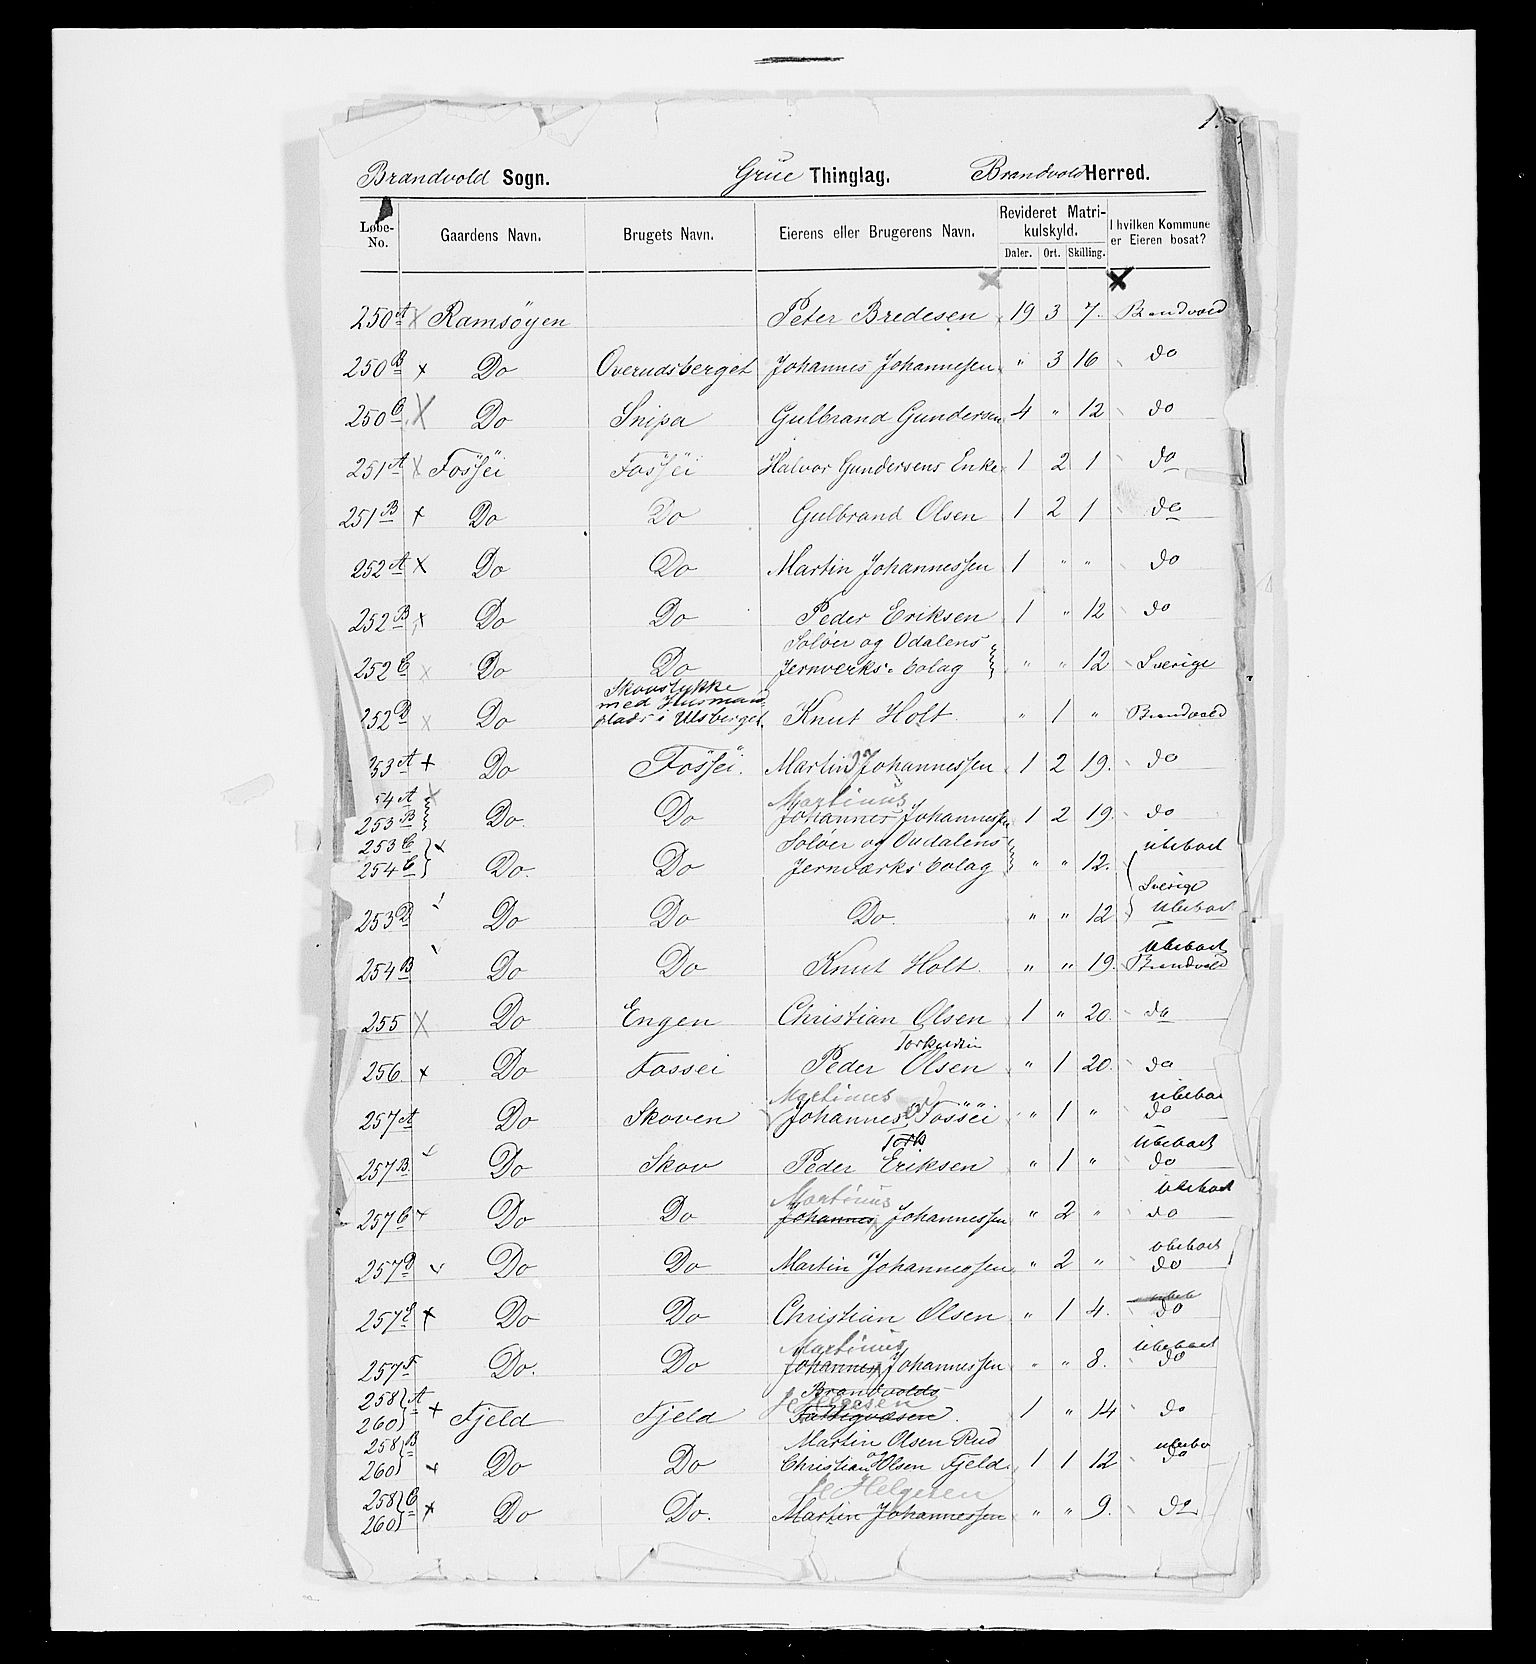 1.
Brandvold Sogn. Grue Thinglag. Brandvold Herred.
Løbe-No. Gaardens Navn. Brugets Navn. Eierens eller Brugerens Navn. Revideret Matrikulskyld. I hvilken Kommune er Eieren bosat?
Daler. Ort. Skilling.
250 A x Ramsöyen Peter Bredesen 19 3 7. Brandvold
250 B x Do Overudsberget Johannes Johannesen " 3 16 do
250 C x Do Snipa Gulbrand Gundersen 4 " 12 do
251 A x Fossei Fossei Halvor Gundersens Enke 1 2 1 do
251 B x Do Do Gulbrand Olsen 1 2 1 do
252 A x Do Do Martin Johannessen 1 " " do
252 B x Do Do Peder Eriksen 1 " 12 do
252 C x Do Do Soløer og Odalens Jernverks bolag " " 12 Sverige
252 D x Do Skovstykke med Husmandplads i Ulsberget Knut Holt " 1 " Brandvold
253 A + Do Fossei. Martin Johannessen 1 2 19. do
54 A x
253 B Do. Do Martinius Johannes Johannessen 1 2 19. do
253 C x
254 C Do. Do Soløer og Oudalens Jernværks bolag " " 12. ubeboet Sverige
253 D Do Do Do. " " 12 ubeboet
254 B Do Do Knut Holt. " " 19. ubeboet Brandvold
255 x Do Engen Christian Olsen 1 " 20. do
256. x Do Fossei Peder Olsen " 1 20. do
257 A Do Skoven Martinius Johannes Fössëi " 1 " ubeboet do
257 B. Do Skov Peder Eriksen " 1 " ubeboet do
257 C Do Do Martinius Johannes Johannessen " 2 " ubeboet do
257 D Do Do Martin Johannessen " 2 " ubeboet do
257 E x Do Do Christian Olsen " 1 4. do
257 F Do. Do Martinius Johannes Johannessen " " 8. ubeboet do
258 A
260 + Fjeld Fjeld Brandvolds Fattigvæsen. Helgesen 1 " 14 do
258 B
260 x Do Do Martin Olsen Rud og Christian Olsen Fjeld. 1 1 12 do
258 C
260 x Do Do. Helgesen Martin Johannessen " " 9. do